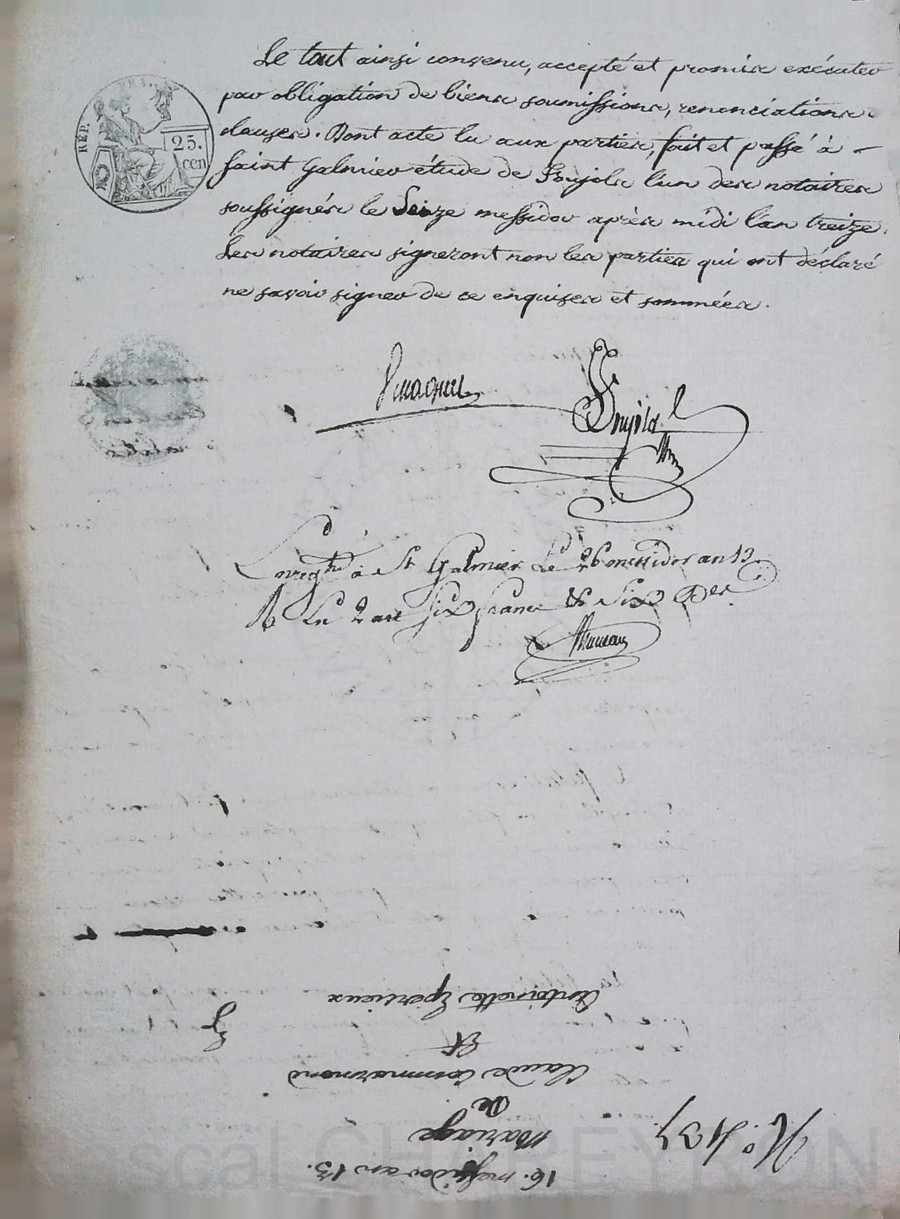 RÉP. FRA.
25.
cen
Le tout ainsi convenu, accepté et promis exécuter
par obligation de biens soumissions, renonciations
clauses. Dont acte lu aux parties, fait et passé à
Saint Galmier étude de Poujols l'un des notaires
soussignés le Seize messidor après midi l'an treize.
Les notaires signeront non les parties qui ont déclaré
ne savoir signer de ce enquises et sommées.
Poujols
Enregté à St Galmier Le 26 messidor an 13
six francs & six
16. messidor an 13.
Mariage
de
Claude Commarmond
Et
Antoinette Epercieux
N.°
Pascal CHAPEYRON